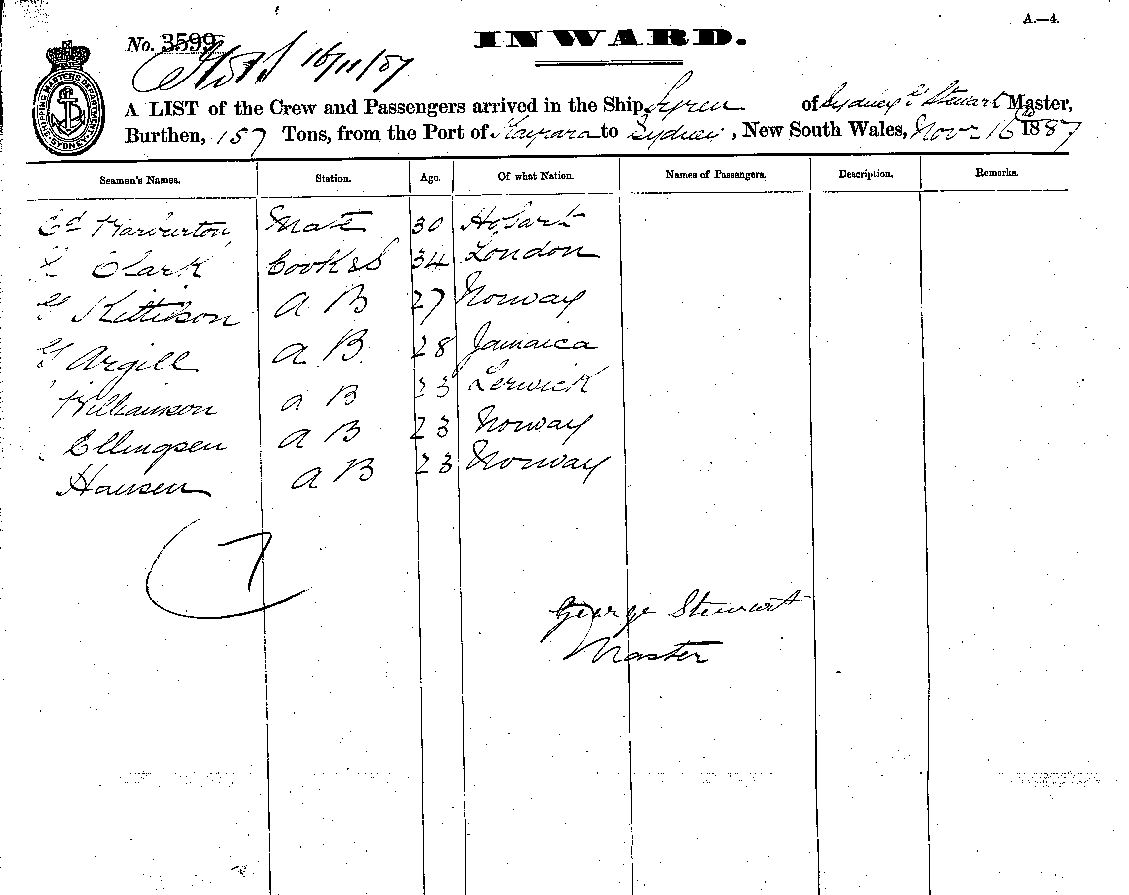 A.—4.
No. 3599
INWARD.
16/11/87
SHIPPING MASTERS DEPARTMENT SYDNEY
A LIST of the Crew and Passengers arrived in the Ship Syren of Sydney G Stewart Master,
Burthen, 157 Tons, from the Port of Kaipara to Sydney, New South Wales, Novr 16 1887
Seamen's Names. Station. Age. Of what Nation. Names of Passengers. Description. Remarks.
Ed Warburton Mate 30 Hobart
Clark Cook & S 34 London
Kittilson A B 27 Norway
G Argill A B. 28 Jamaica
Williamson A B 23 Lerwick
Ellingsen A B 23 Norway
Hansen A B 23 Norway
7
George Stewart
Master